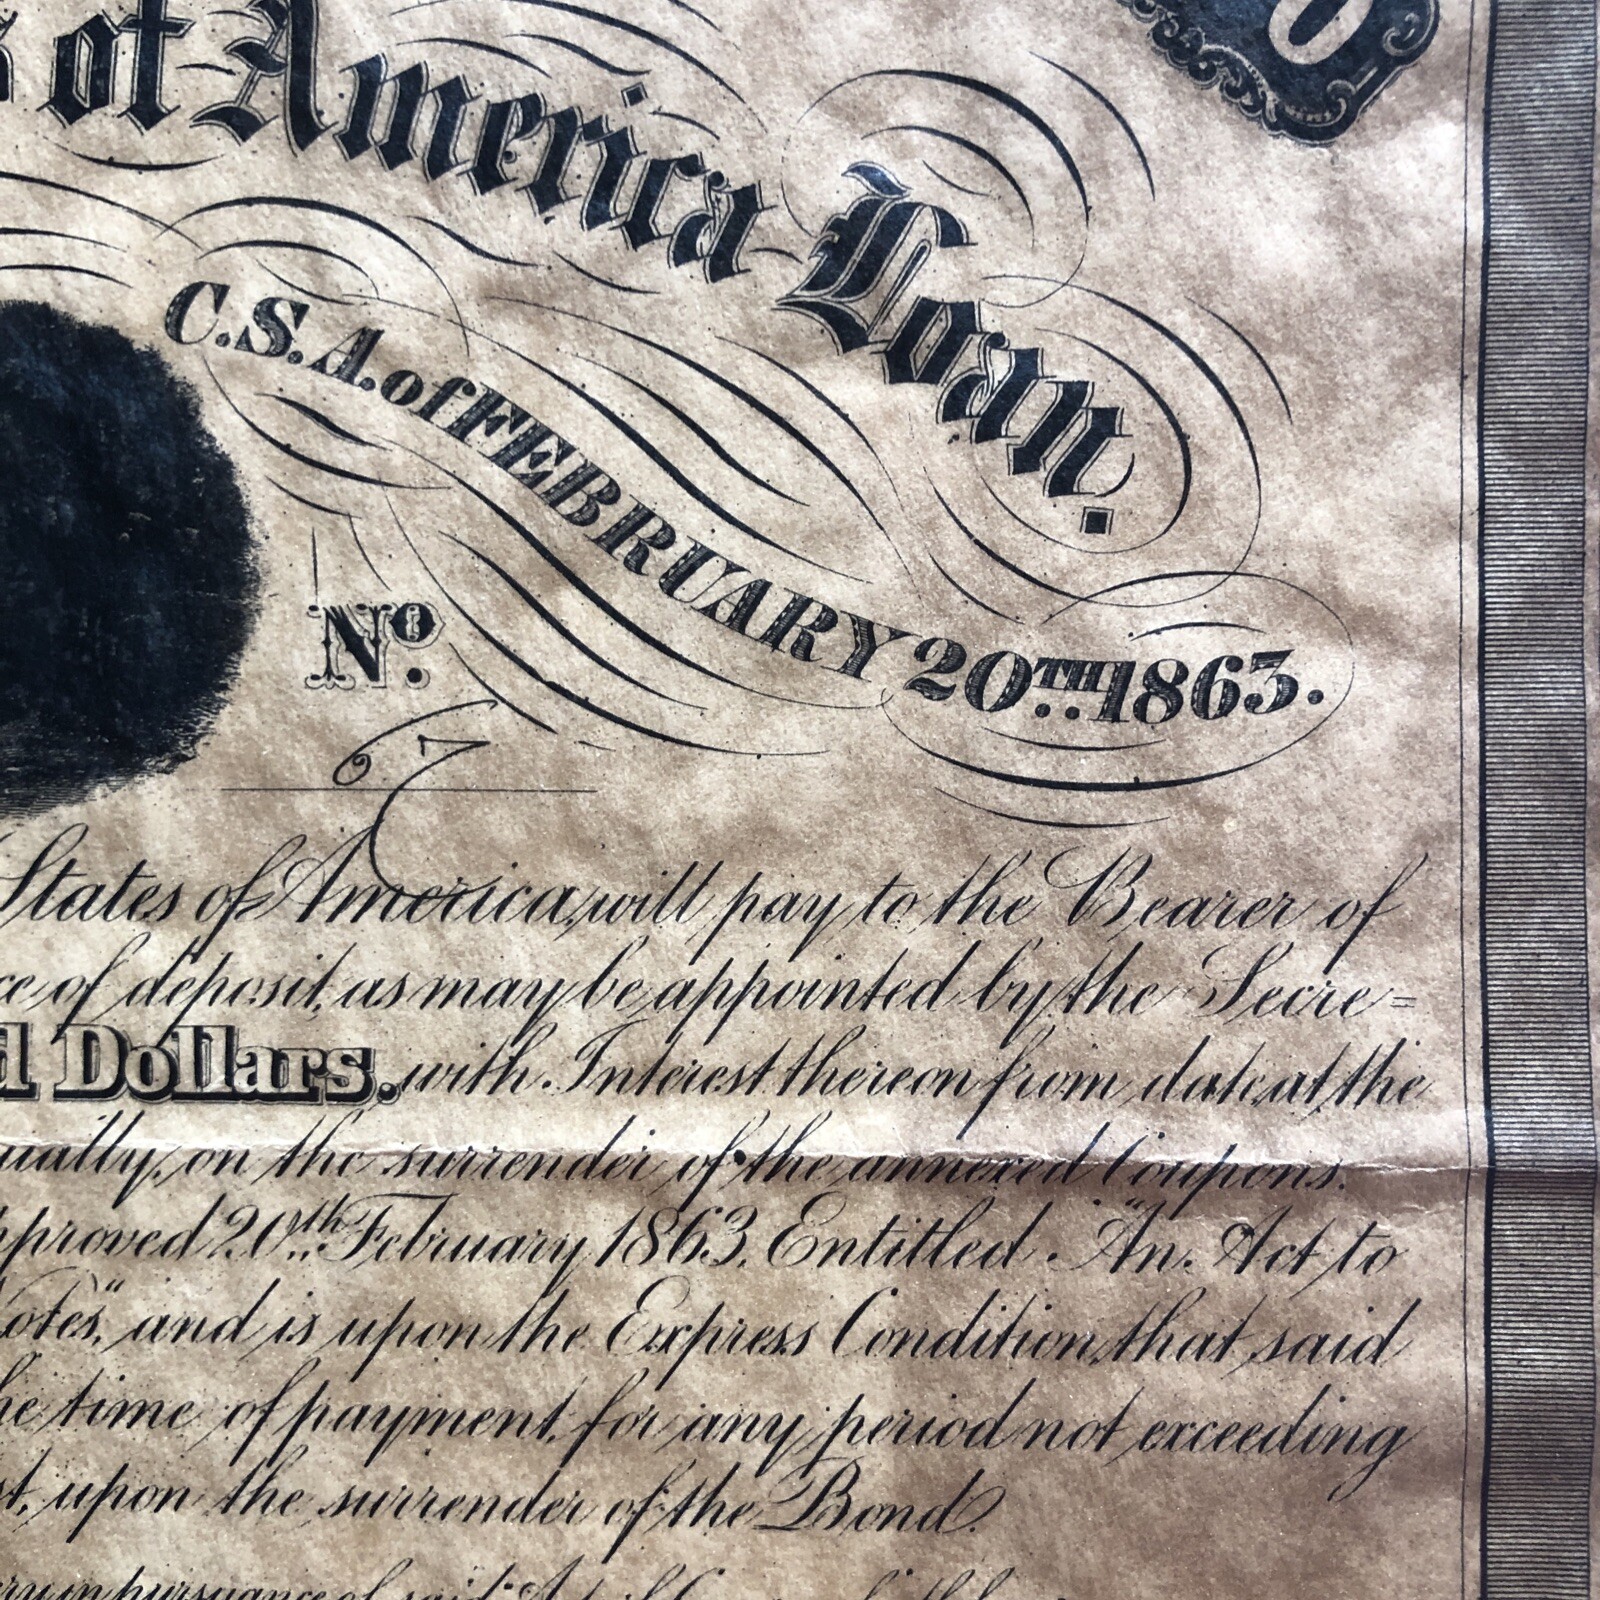 0
s of America Loan.
C.S.A. of FEBRUARY 20TH 1863.
No.
67
States of America, will pay to the Bearer of
ce of deposit, as may be appointed by the Secre=
d Dollars, with Interest thereon from date, at the
ually, on the surrender of the annexed Coupons.
pproved 20th February 1863, Entitled "An Act to
Notes", and is upon the Express Condition, that said
he time of payment, for any period not exceeding
st, upon the surrender of the Bond.
in pursuance of said Act